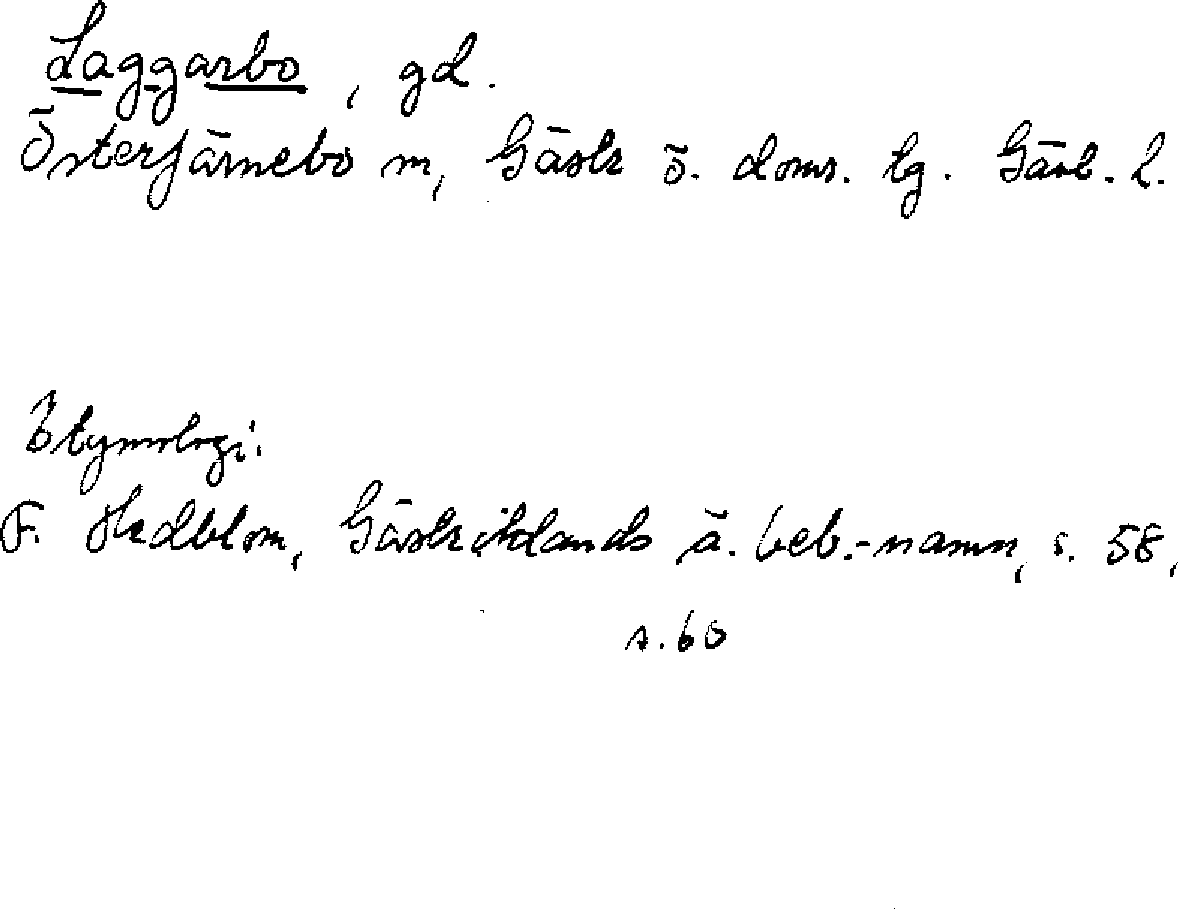 Laggarbo, gd.
Österfärnebo sn, Gästr ö. doms. tg. Gävl. l.
Etymologi:
F. Hedblom, Gästriklands ä. beb.-namn, s. 58,
s. 60